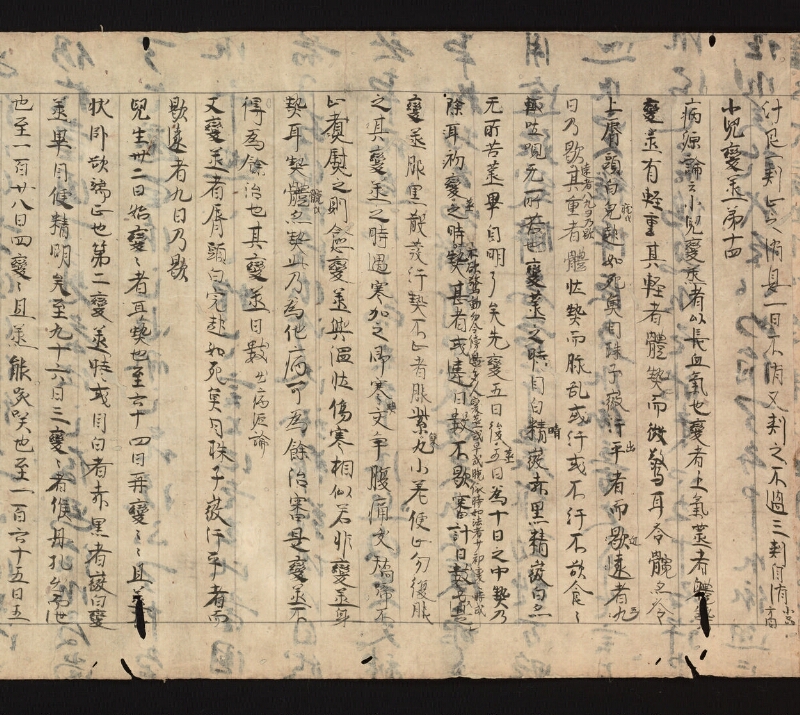 什起一刺止之消息一日不消又刺之不過三刺自消
小兒變蒸第十四
病源論云小兒變蒸者以長血氣也變者上氣蒸者體熱
變蒸有輕重其輕者體熱而微驚耳冷髖亦冷
上脣頭白兒起如死魚目珠子微汗出平者而歇遠者九
日乃歇其重者體壯熱而脉乱或汗或不汗不欲食
輒吐哯无所苦也變蒸之時目白精微赤黑精微白亦
无所苦蒸畢自明了矣先變五日後五日為十日之中熱乃
除耳初變之時熱甚者或違日數不歇審計日數
變蒸服黑散發汗熱不止者服紫丸小差便止勿復服
之其變蒸之時遇寒加之即寒交爭腹痛夭矯啼不
止者熨之則愈變蒸與溫壯傷寒相似若非變蒸身
熱耳熱髖亦熱此乃為他病可為餘治審是變蒸不
得為餘治也其變蒸日數
又變蒸者脣頭白宍起如死魚目珠子微汗平者而
歇遠者九日乃歇
兒生卅二日始變々者耳熱也至六十四日再變々且蒸
狀卧欲端正也第二變蒸時或目白者赤黑者微白變
蒸畢目便精明矣至九十六日三變々者候丹孔
也至一百廿八日四變々且蒸能咲也至一百六十五日五